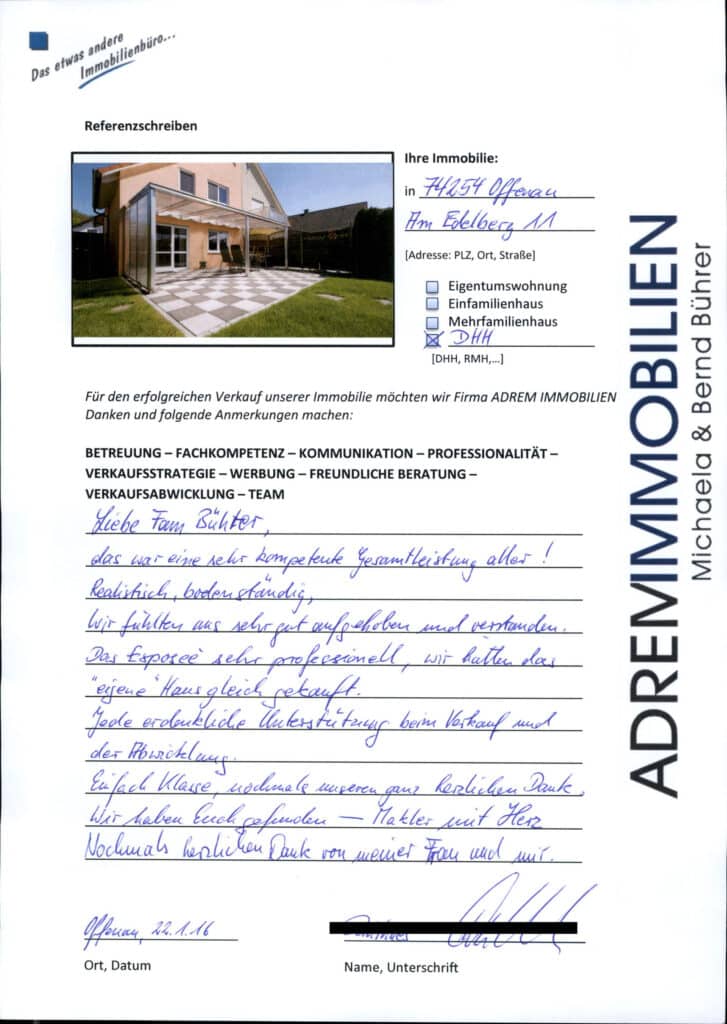 Das etwas andere
Immobilienbüro...
Referenzschreiben
Ihre Immobilie:
in 74254 Offenau
Am Edelberg 11
[Adresse: PLZ, Ort, Straße]
Eigentumswohnung
Einfamilienhaus
Mehrfamilienhaus
DHH
[DHH, RMH,...]
Für den erfolgreichen Verkauf unserer Immobilie möchten wir Firma ADREM IMMOBILIEN
Danken und folgende Anmerkungen machen:
BETREUUNG – FACHKOMPETENZ – KOMMUNIKATION – PROFESSIONALITÄT –
VERKAUFSSTRATEGIE – WERBUNG – FREUNDLICHE BERATUNG –
VERKAUFSABWICKLUNG – TEAM
Liebe Fam Bührer,
das war eine sehr kompetente Gesamtleistung aller!
Realistisch, bodenständig,
Wir fühlten uns sehr gut aufgehoben und verstanden.
Das Exposeè sehr professionell, wir hätten das
"eigene" Haus gleich gekauft.
Jede erdenkliche Unterstützung beim Verkauf und
der Abwicklung.
Einfach Klasse, nochmals unseren ganz herzlichen Dank.
Wir haben Euch gefunden — Makler mit Herz
Nochmals herzlichen Dank von meiner Frau und mir.
Offenau, 22.1.16
Ort, Datum
Name, Unterschrift
ADREMIMMOBILIEN
Michaela & Bernd Bührer